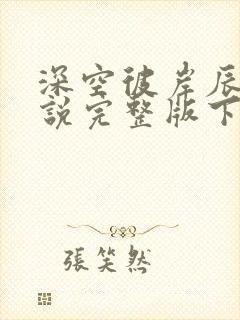 深空彼岸辰
說完整版下
張笑然